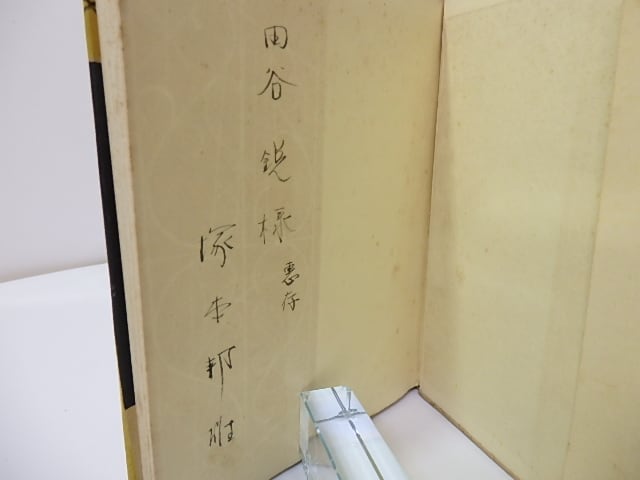 田谷鋭様 恵存
塚本邦雄